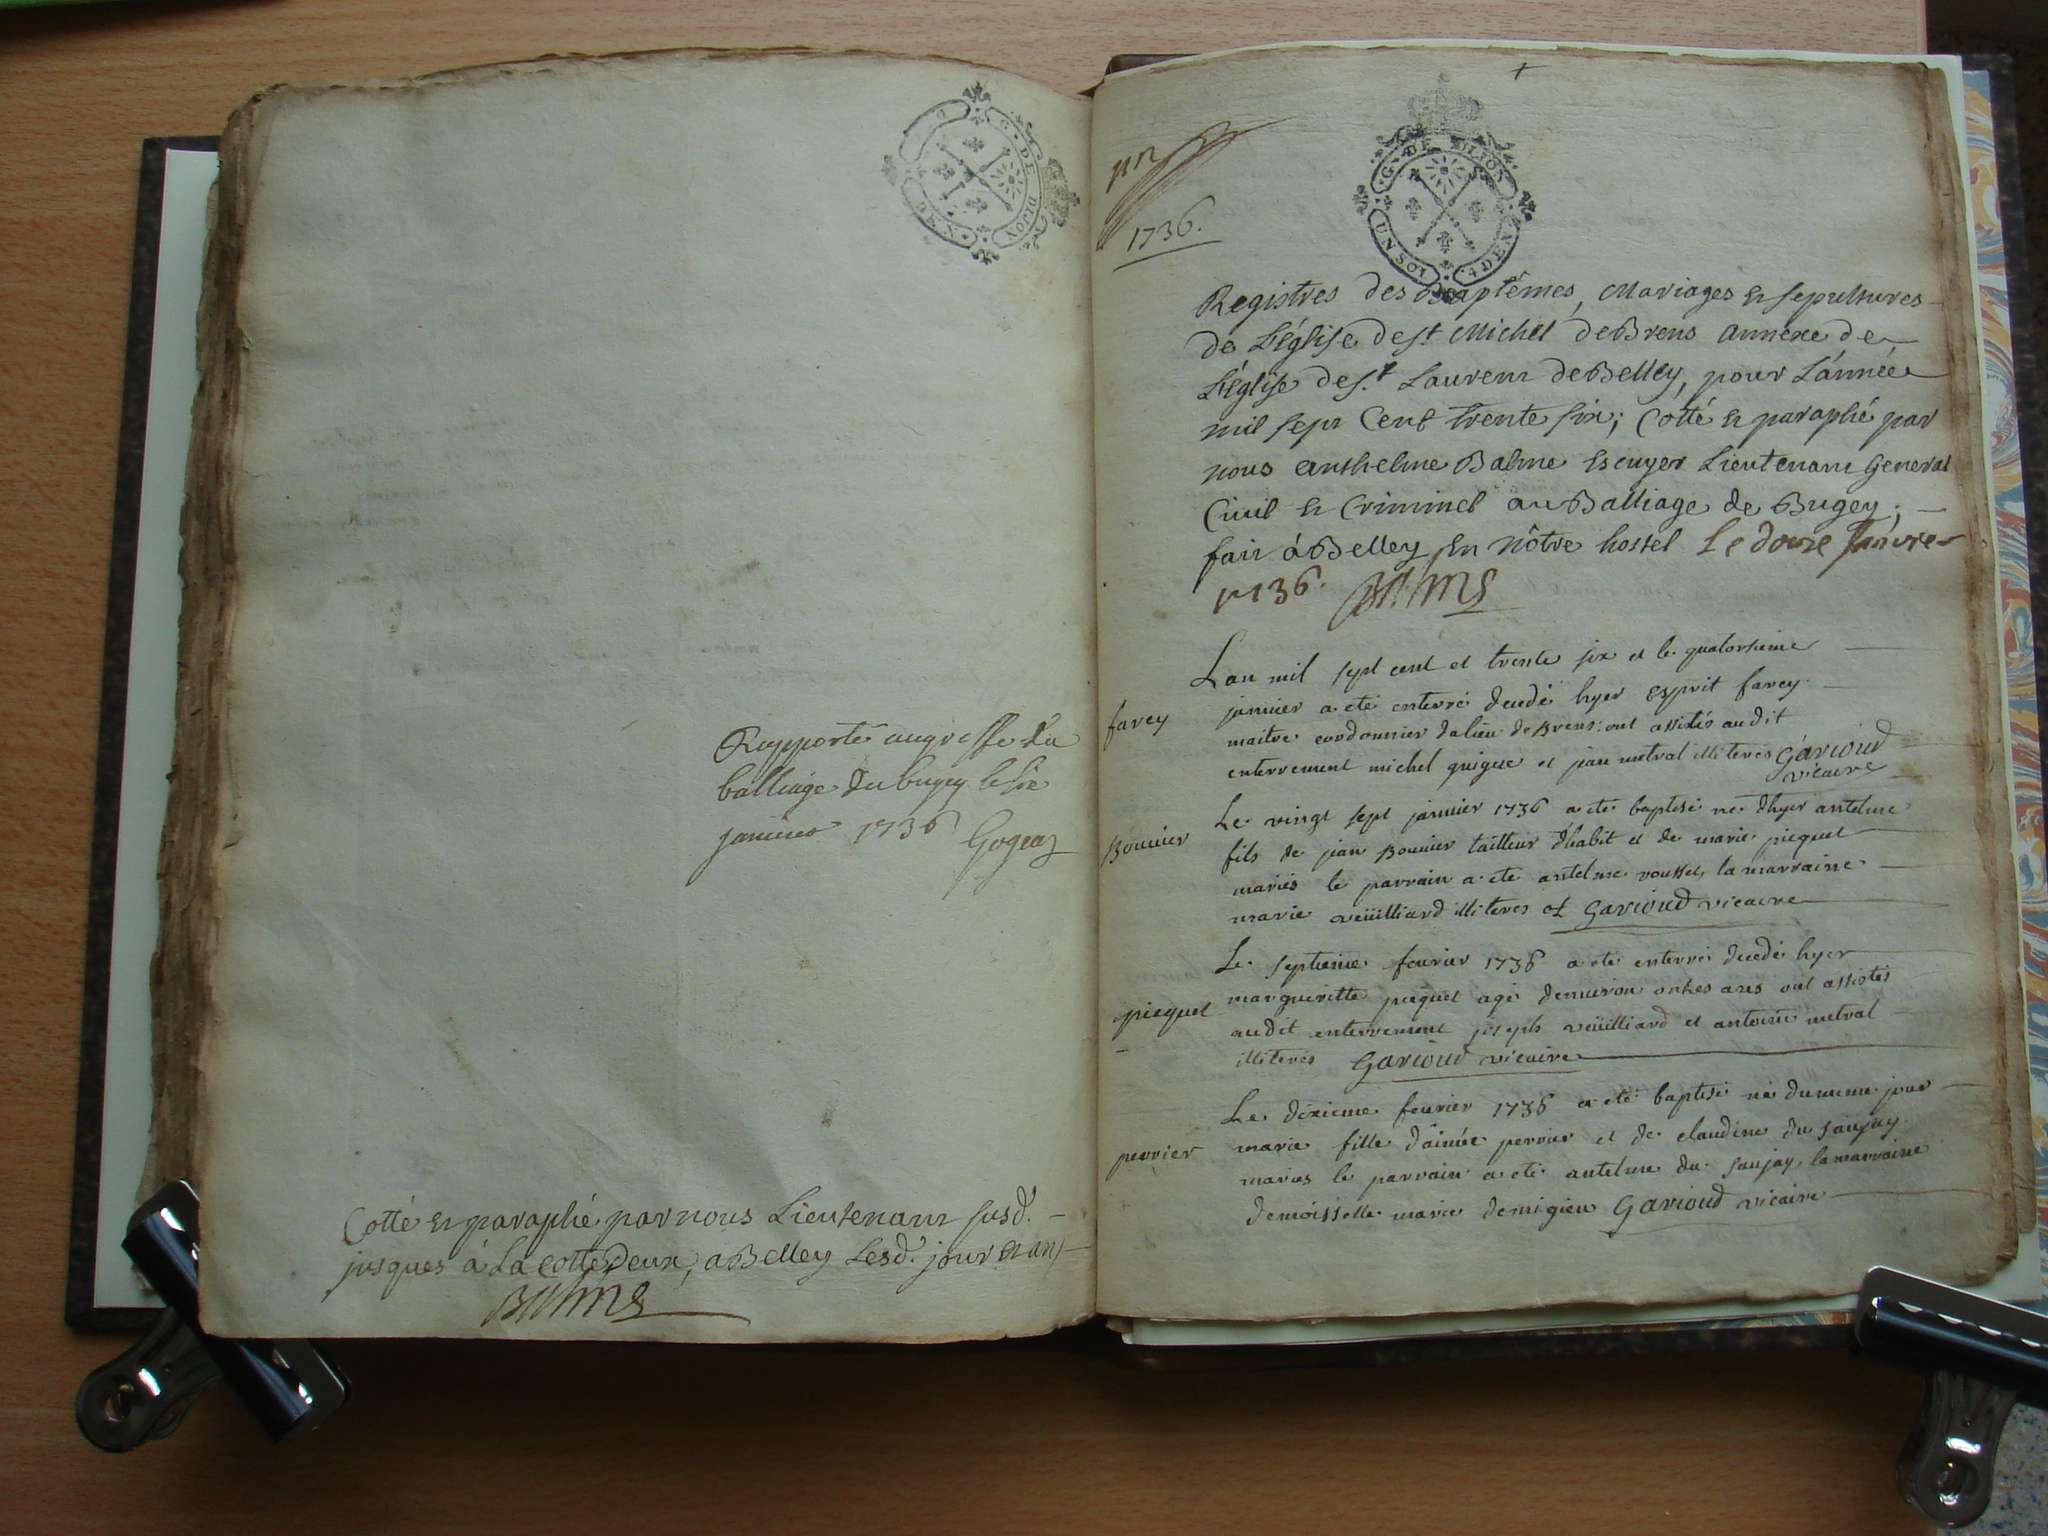 G. DE DIJON
Rapporté au greffe du
balliage du bugey le
janvier 1736 Gogeat
Cotté et paraphé par nous Lieutenant susd.
jusques à La cotte Deux, a Belley Lesd. jour et an
Balme
1736.
G. DE DIJON
UN SOL 4 DEN
Registres des Baptêmes, Mariages et sepultures
de L'église de St Michel de Brens annexe de
L'église de St Laurent de Belley, pour L'année
mil sept Cent trente six; Cotté et paraphé par
nous anthelme Balme Escuyer Lieutenant General
Civil et Criminel au Balliage de Bugey;
fait à Belley En nôtre hostel Le douze janvier
1736. Balme
Lan mil sept cent et trente six et le quatorsieme
farey
janvier a eté enterré decedé hyer Esprit farey
maitre cordonnier du lieu de Brens: ont assistés au dit
enterrement michel guigue et jean metral illiterés Garioud
vicaire
Bonnier
Le vingt sept janvier 1736 a eté baptisé né dhyer antelme
fils de jean Bonnier tailleur dhabit et de marie picquet
mariés le parrain a eté antelme roussel, la marraine
marie veüilliard illiterés Garioud vicaire
picquet
Le septieme fevrier 1736 a eté enterré decedé hyer
margueritte picquet agé denviron onhes ans ont assistés
audit enterrement joseph veüilliard et antoine metral
illiterés Garioud vicaire
perrier
Le dixieme fevrier 1736 a eté baptisé né du meme jour
marie fille d'aimée perrier et de claudine du saujay
mariés le parrain a eté antelme du saujay, la marraine
demoisselle marie demigieu Garioud vicaire